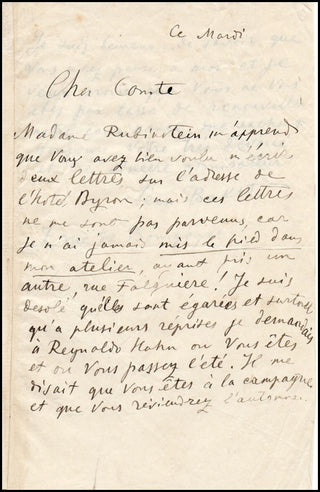 Ce Mardi
Cher Comte
Madame Rubinstein m'apprend
que Vous avez bien voulu m'écrire
deux lettres sur l'adresse de
l'hotel Byron; mais ces lettres
ne me sont pas parvenus, car
je n'ai jamais mis le pied dans
mon atelier, ayant pris un
autre, rue Falguiere! Je suis
desolé qu'elles sont égarées et surtout
qu'a plusieurs réprises je demandais
à Reynaldo Hahn ou Vous êtes
et ou Vous passez l'été. Il me
disait que Vous êtes à la campagne
et que Vous reviendrez l'automne.